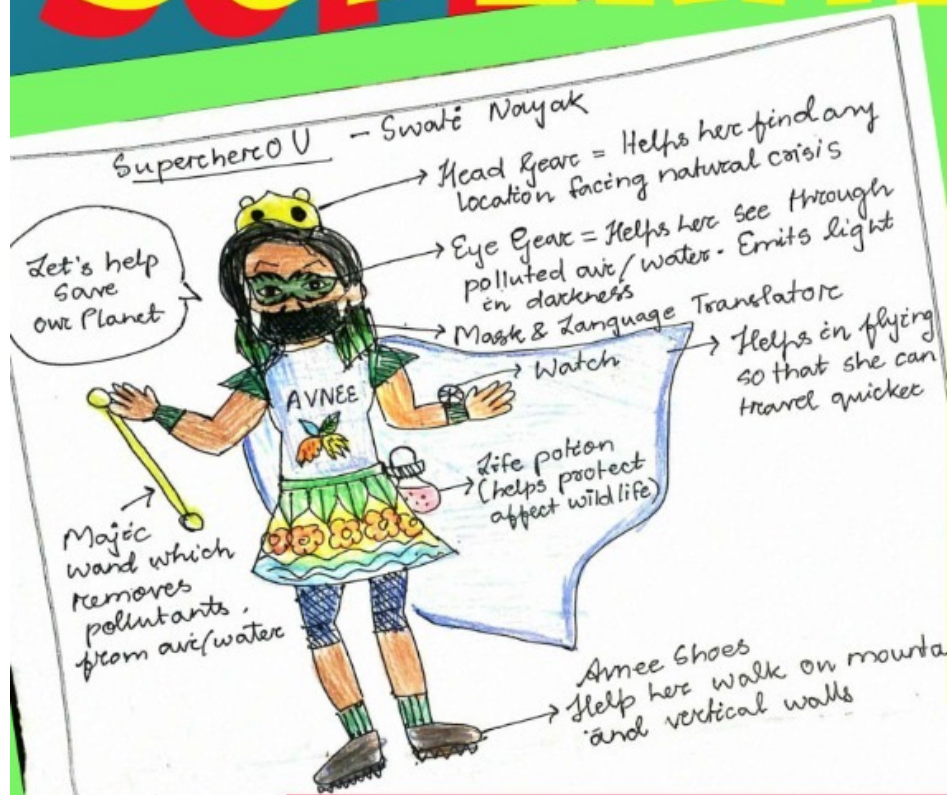 SuperheroU - Swati Nayak
Head Gear = Helps her find any
location facing natural crisis
Let's help
save
our Planet
Eye Gear = Helps her see through
polluted air/water. Emits light
in darkness
Mask & Language Translator
Helps in flying
so that she can
travel quicker
Watch
AVNEE
Life potion
(helps protect
affect wildlife)
Majic
wand which
removes
pollutants.
from air/water
Avnee Shoes
Help her walk on mounta
and vertical walls